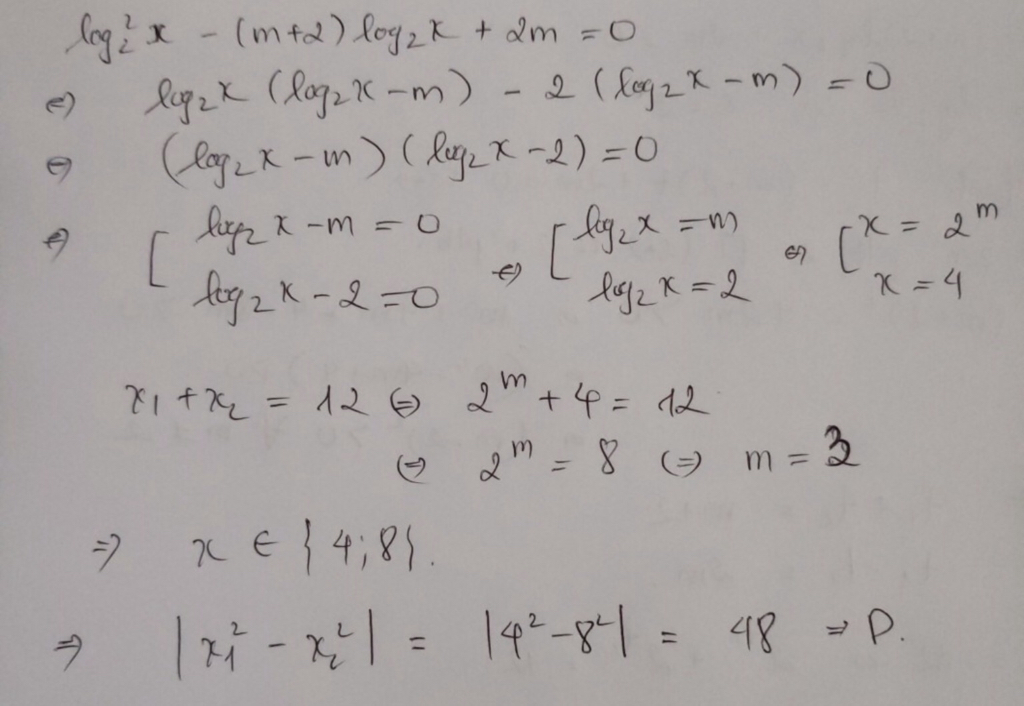 log₂² x - (m+2) log₂x + 2m = 0
⇔ log₂x (log₂x - m) - 2 (log₂x - m) = 0
⇔ (log₂x - m) (log₂x - 2) = 0
⇔ [ log₂x - m = 0 ⇔ [ log₂x = m ⇔ [ x = 2^m
log₂x - 2 = 0 log₂x = 2 x = 4
x₁ + x₂ = 12 ⇔ 2^m + 4 = 12
⇔ 2^m = 8 ⇔ m = 3
⇒ x ∈ {4;8}.
⇒ |x₁² - x₂²| = |4² - 8²| = 48 ⇒ D.